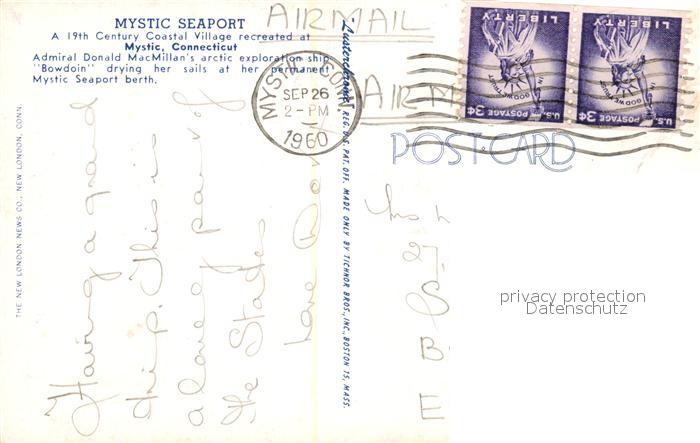 MYSTIC SEAPORT
A 19th Century Coastal Village recreated at
Mystic, Connecticut
Admiral Donald MacMillan's arctic exploration ship
"Bowdoin" drying her sails at her permanent
Mystic Seaport berth.
AIR MAIL
AIR M
MYSTIC CONN
SEP 26
2-PM
1960
LIBERTY
IN GOD WE TRUST
U.S. POSTAGE 3¢
LIBERTY
IN GOD WE TRUST
U.S. POSTAGE 3¢
POST CARD
Having a grand
trip. This is
a lovely part of
the States
Love
THE NEW LONDON NEWS CO., NEW LONDON, CONN.
REG. U.S. PAT. OFF. MADE ONLY BY TICHNOR BROS., INC., BOSTON 15, MASS.
Mrs
27
S
B
E
privacy protection
Datenschutz